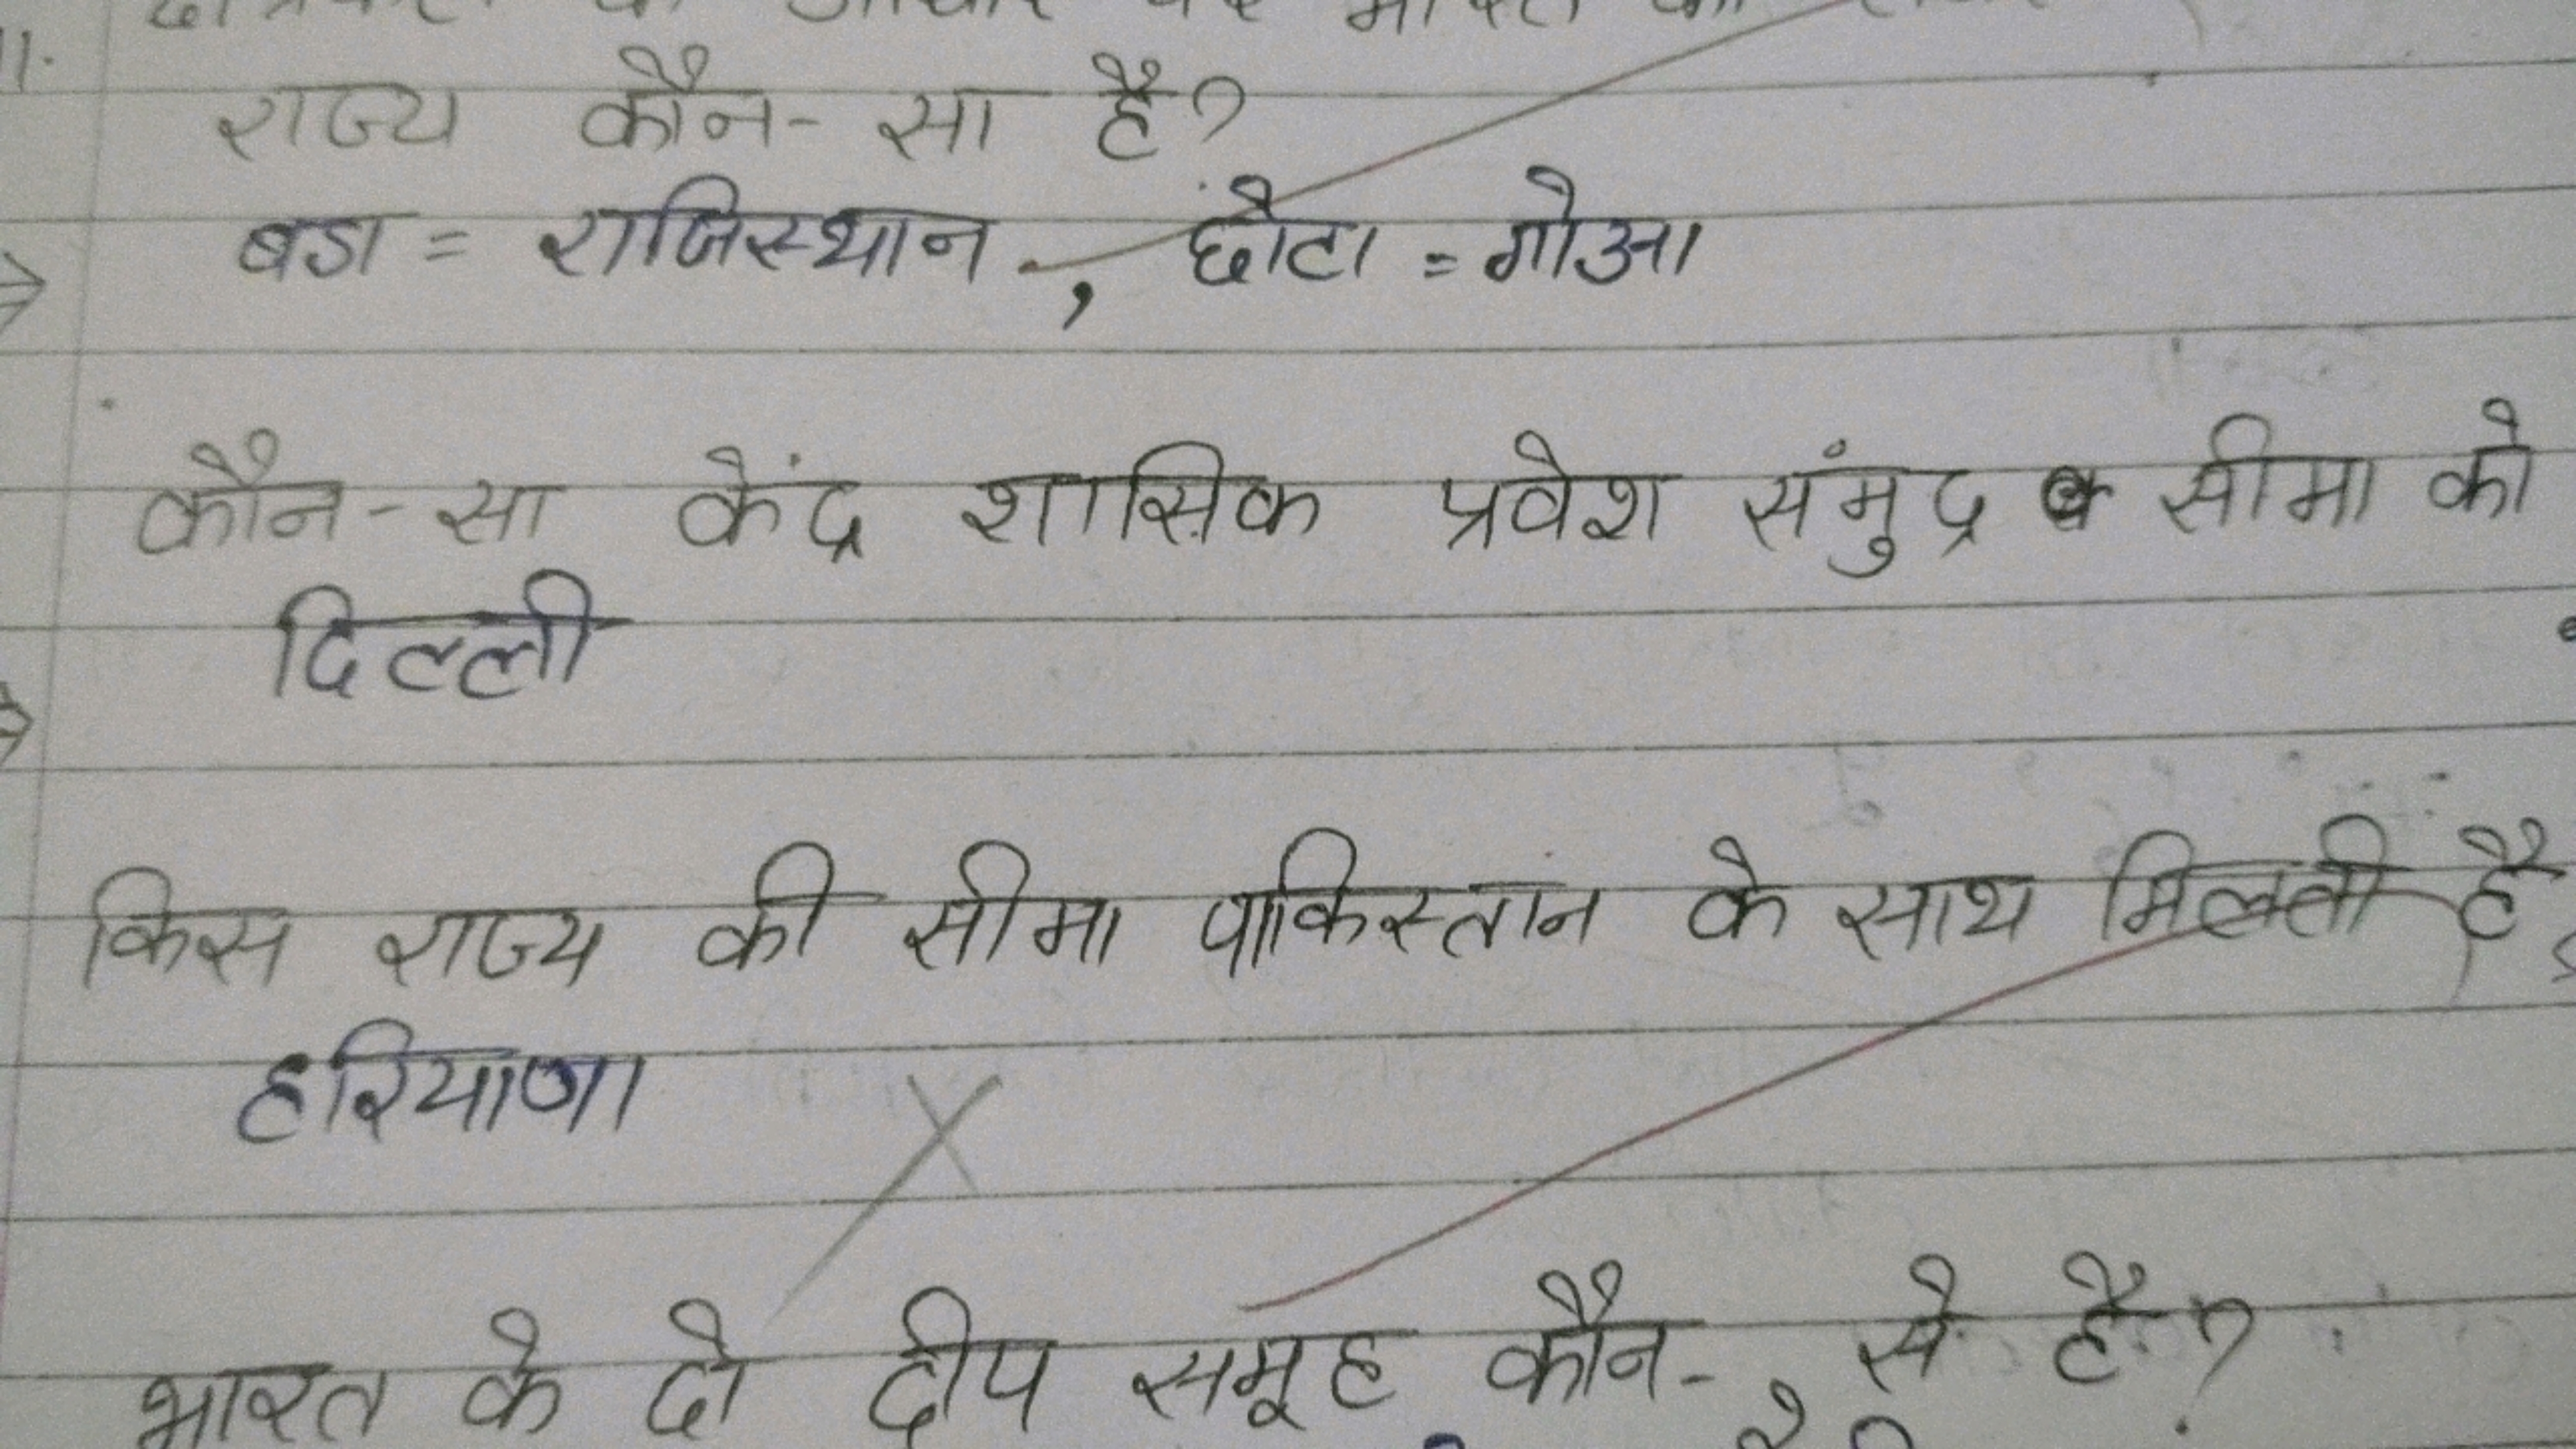 11.
राज्य कौन-सा है?
बडा = राजिस्थान , छोटा = गोआ
कौन-सा केंद्र शासिक प्रवेश संमुद्र सीमा को
दिल्ली
किस राज्य की सीमा पाकिस्तान के साथ मिलती है
हरियाणा
भारत के दो द्वीप समूह कौन-से है?